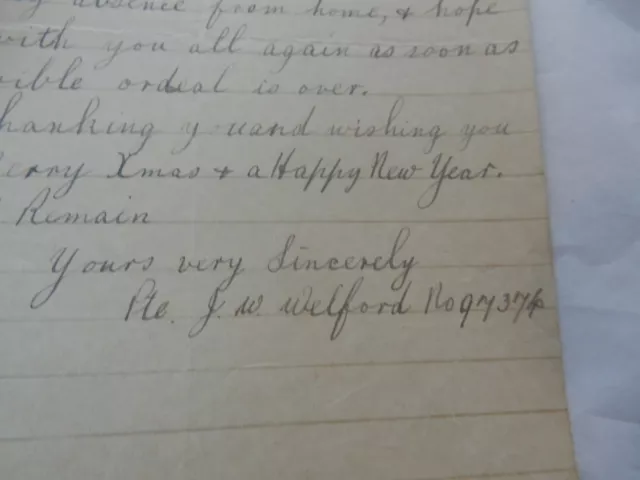 absence from home, & hope
with you all again as soon as
ible ordeal is over.
hanking you and wishing you
erry Xmas & a Happy New Year.
Remain
Yours very Sincerely
Pte. J. W. Welford No 97374